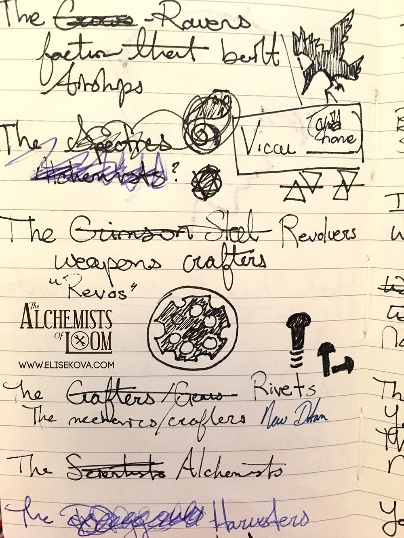 The Ravens
faction that built
Airships
The
Vicar
?
The Crimson Steel Revolvers
weapons crafters
"Revos"
The
ALCHEMISTS
OF LOOM
WWW.ELISEKOVA.COM
The Crafters/Gears Rivets
The mechanics/crafters New Dortam
The Scientists Alchemists
The Harvesters